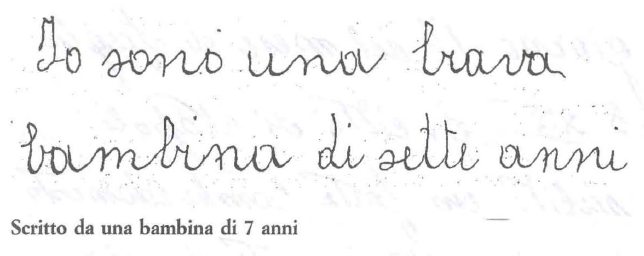 Io sono una brava
bambina di sette anni
Scritto da una bambina di 7 anni